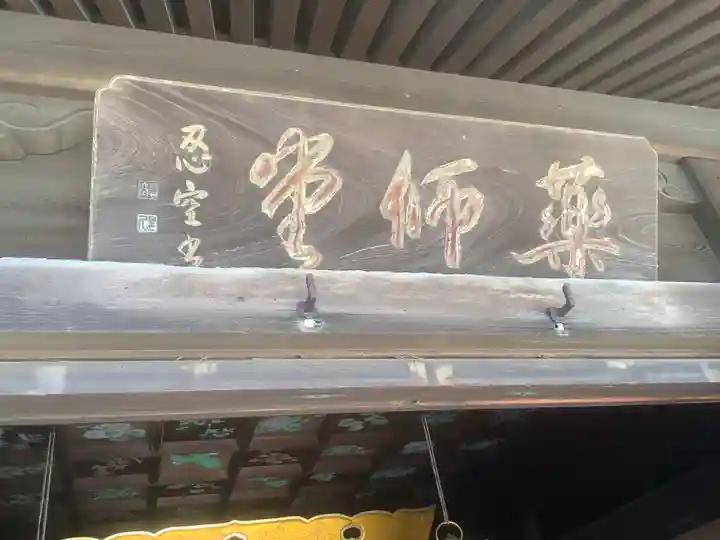 藥師堂
忍空書